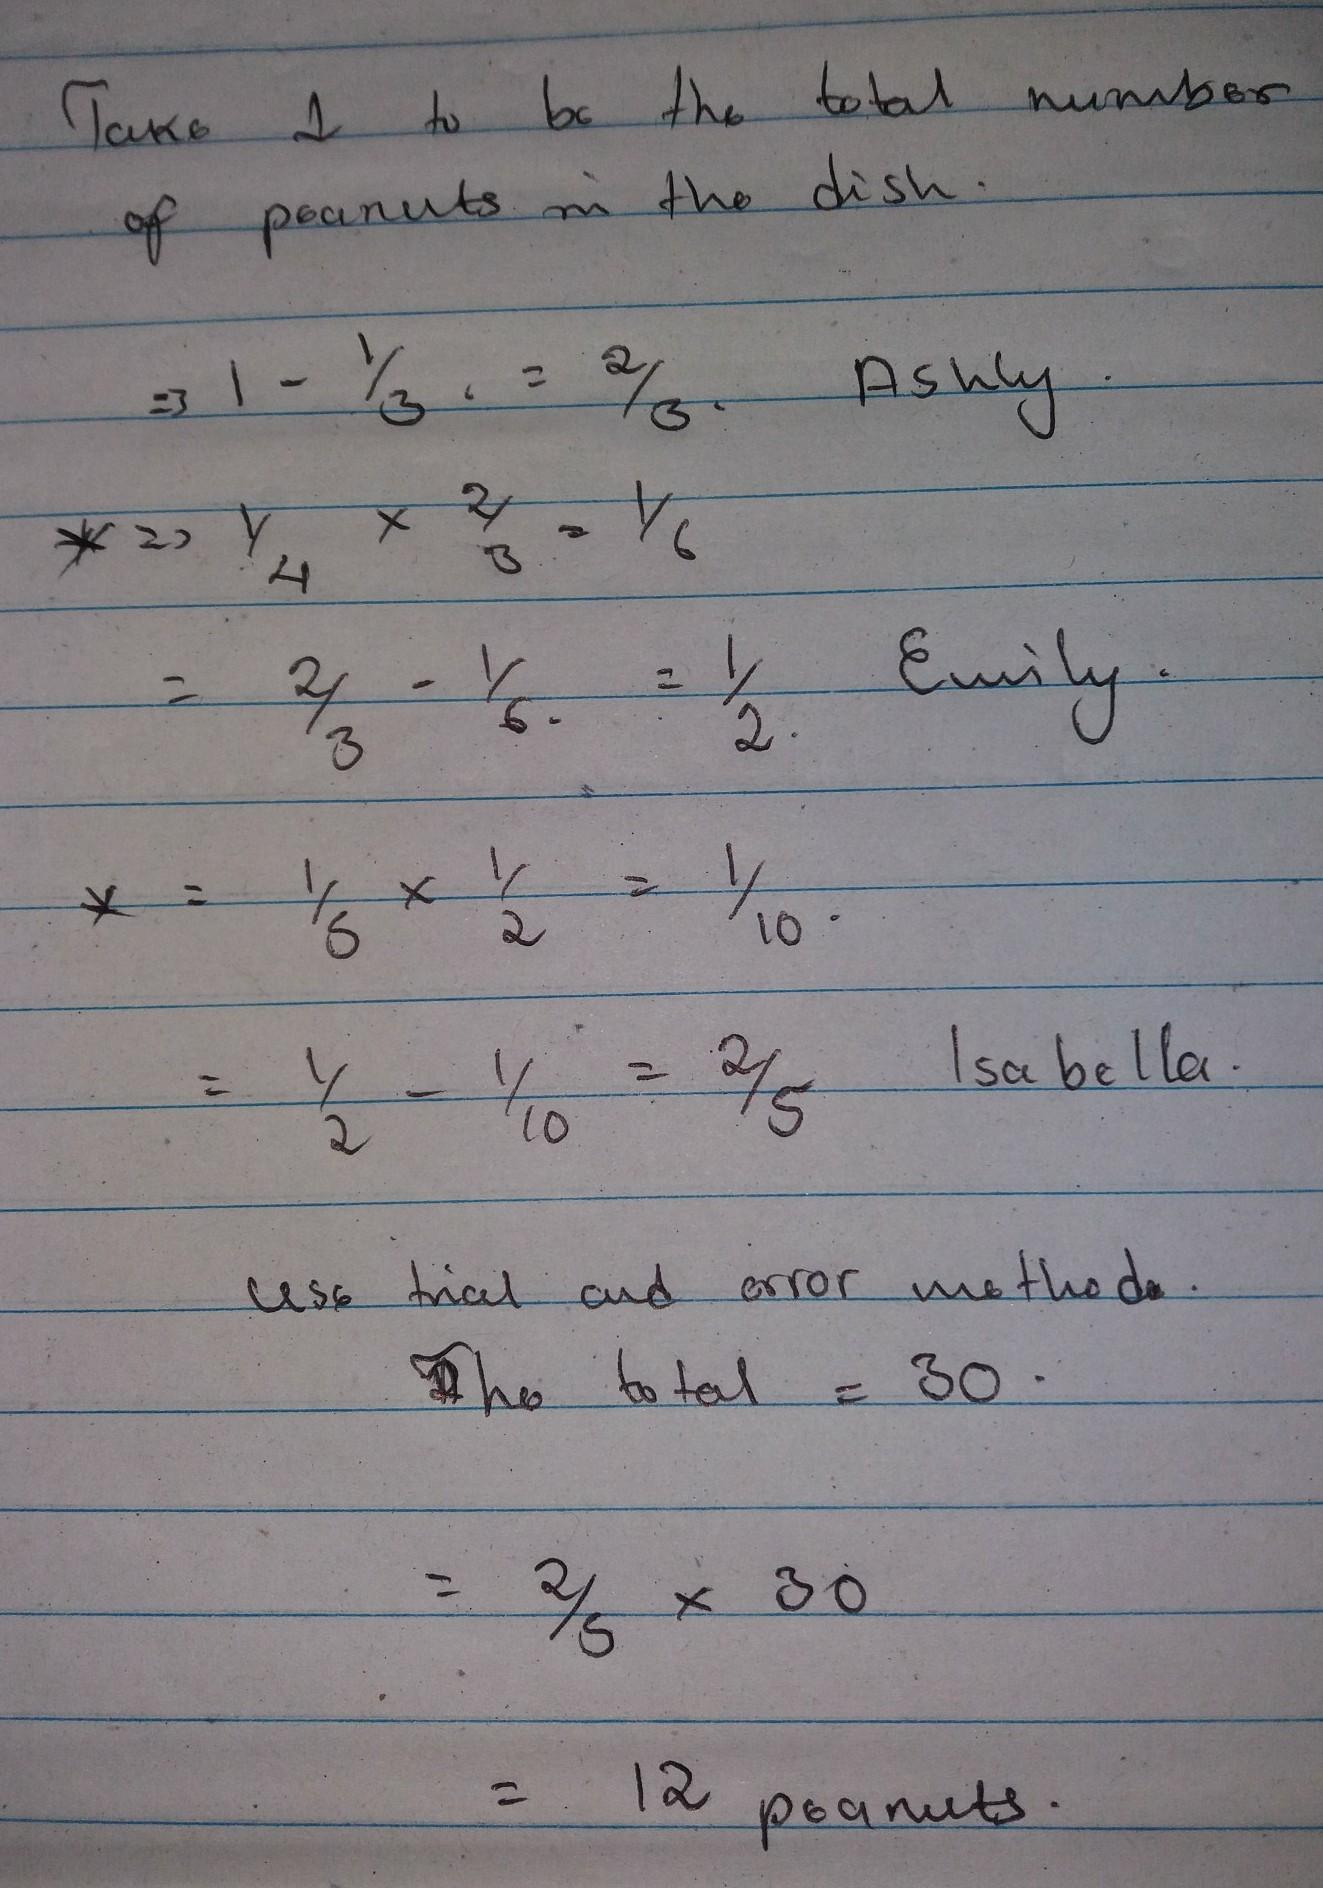 Take 1 to be the total number
of peanuts in the dish.
=> 1 - 1/3 . = 2/3. Ashly.
* => 1/4 × 2/3 = 1/6
= 2/3 - 1/6. = 1/2. Emily.
* = 1/5 × 1/2 = 1/10.
= 1/2 - 1/10 = 2/5 Isabella.
use trial and error method.
The total = 30.
= 2/5 × 30
= 12 peanuts.